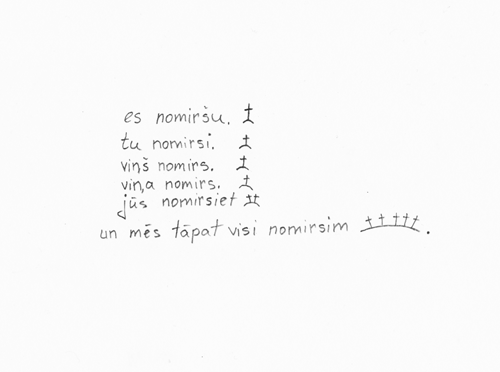 es nomiršu.
tu nomirsi.
viņš nomirs.
viņa nomirs.
jūs nomirsiet
un mēs tāpat visi nomirsim .